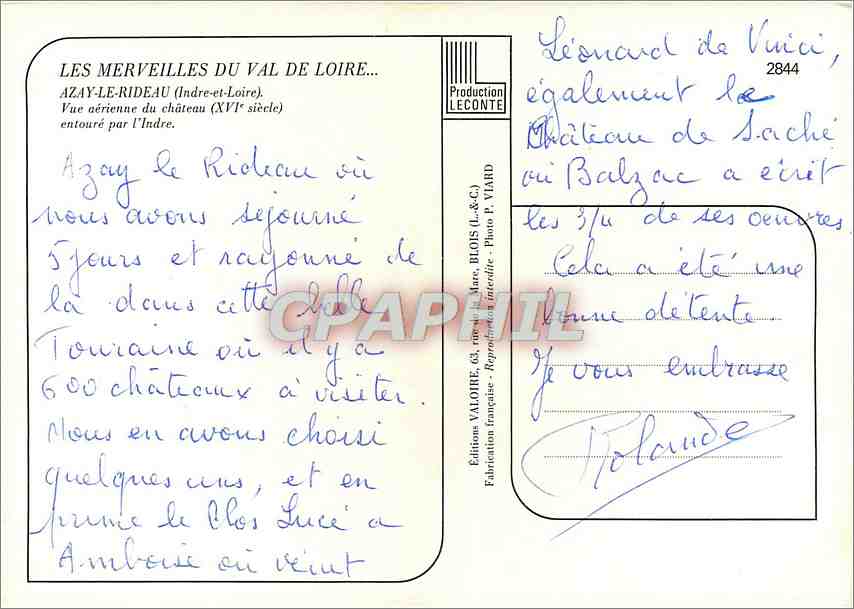 LES MERVEILLES DU VAL DE LOIRE...
AZAY-LE-RIDEAU (Indre-et-Loire).
Vue aérienne du château (XVIe siècle)
entouré par l'Indre.
Azay le Rideau où
nous avons séjourné
5 jours et rayonné de
là dans cette belle
Touraine où il y a
600 châteaux à visiter.
Nous en avons choisi
quelques uns, et en
prime le Clos Lucé a
Amboise où veint
Production
LECONTE
Éditions VALOIRE, 63, rue de la Mare, BLOIS (L.-&-C.)
Fabrication française - Reproduction interdite - Photo P. VIARD
2844
Léonard de Vinci,
également le
Château de Saché
où Balzac a écrit
les 3/4 de ses oeuvres.
Cela a été une
bonne détente.
Je vous embrasse
Rolande
CPAPHIL